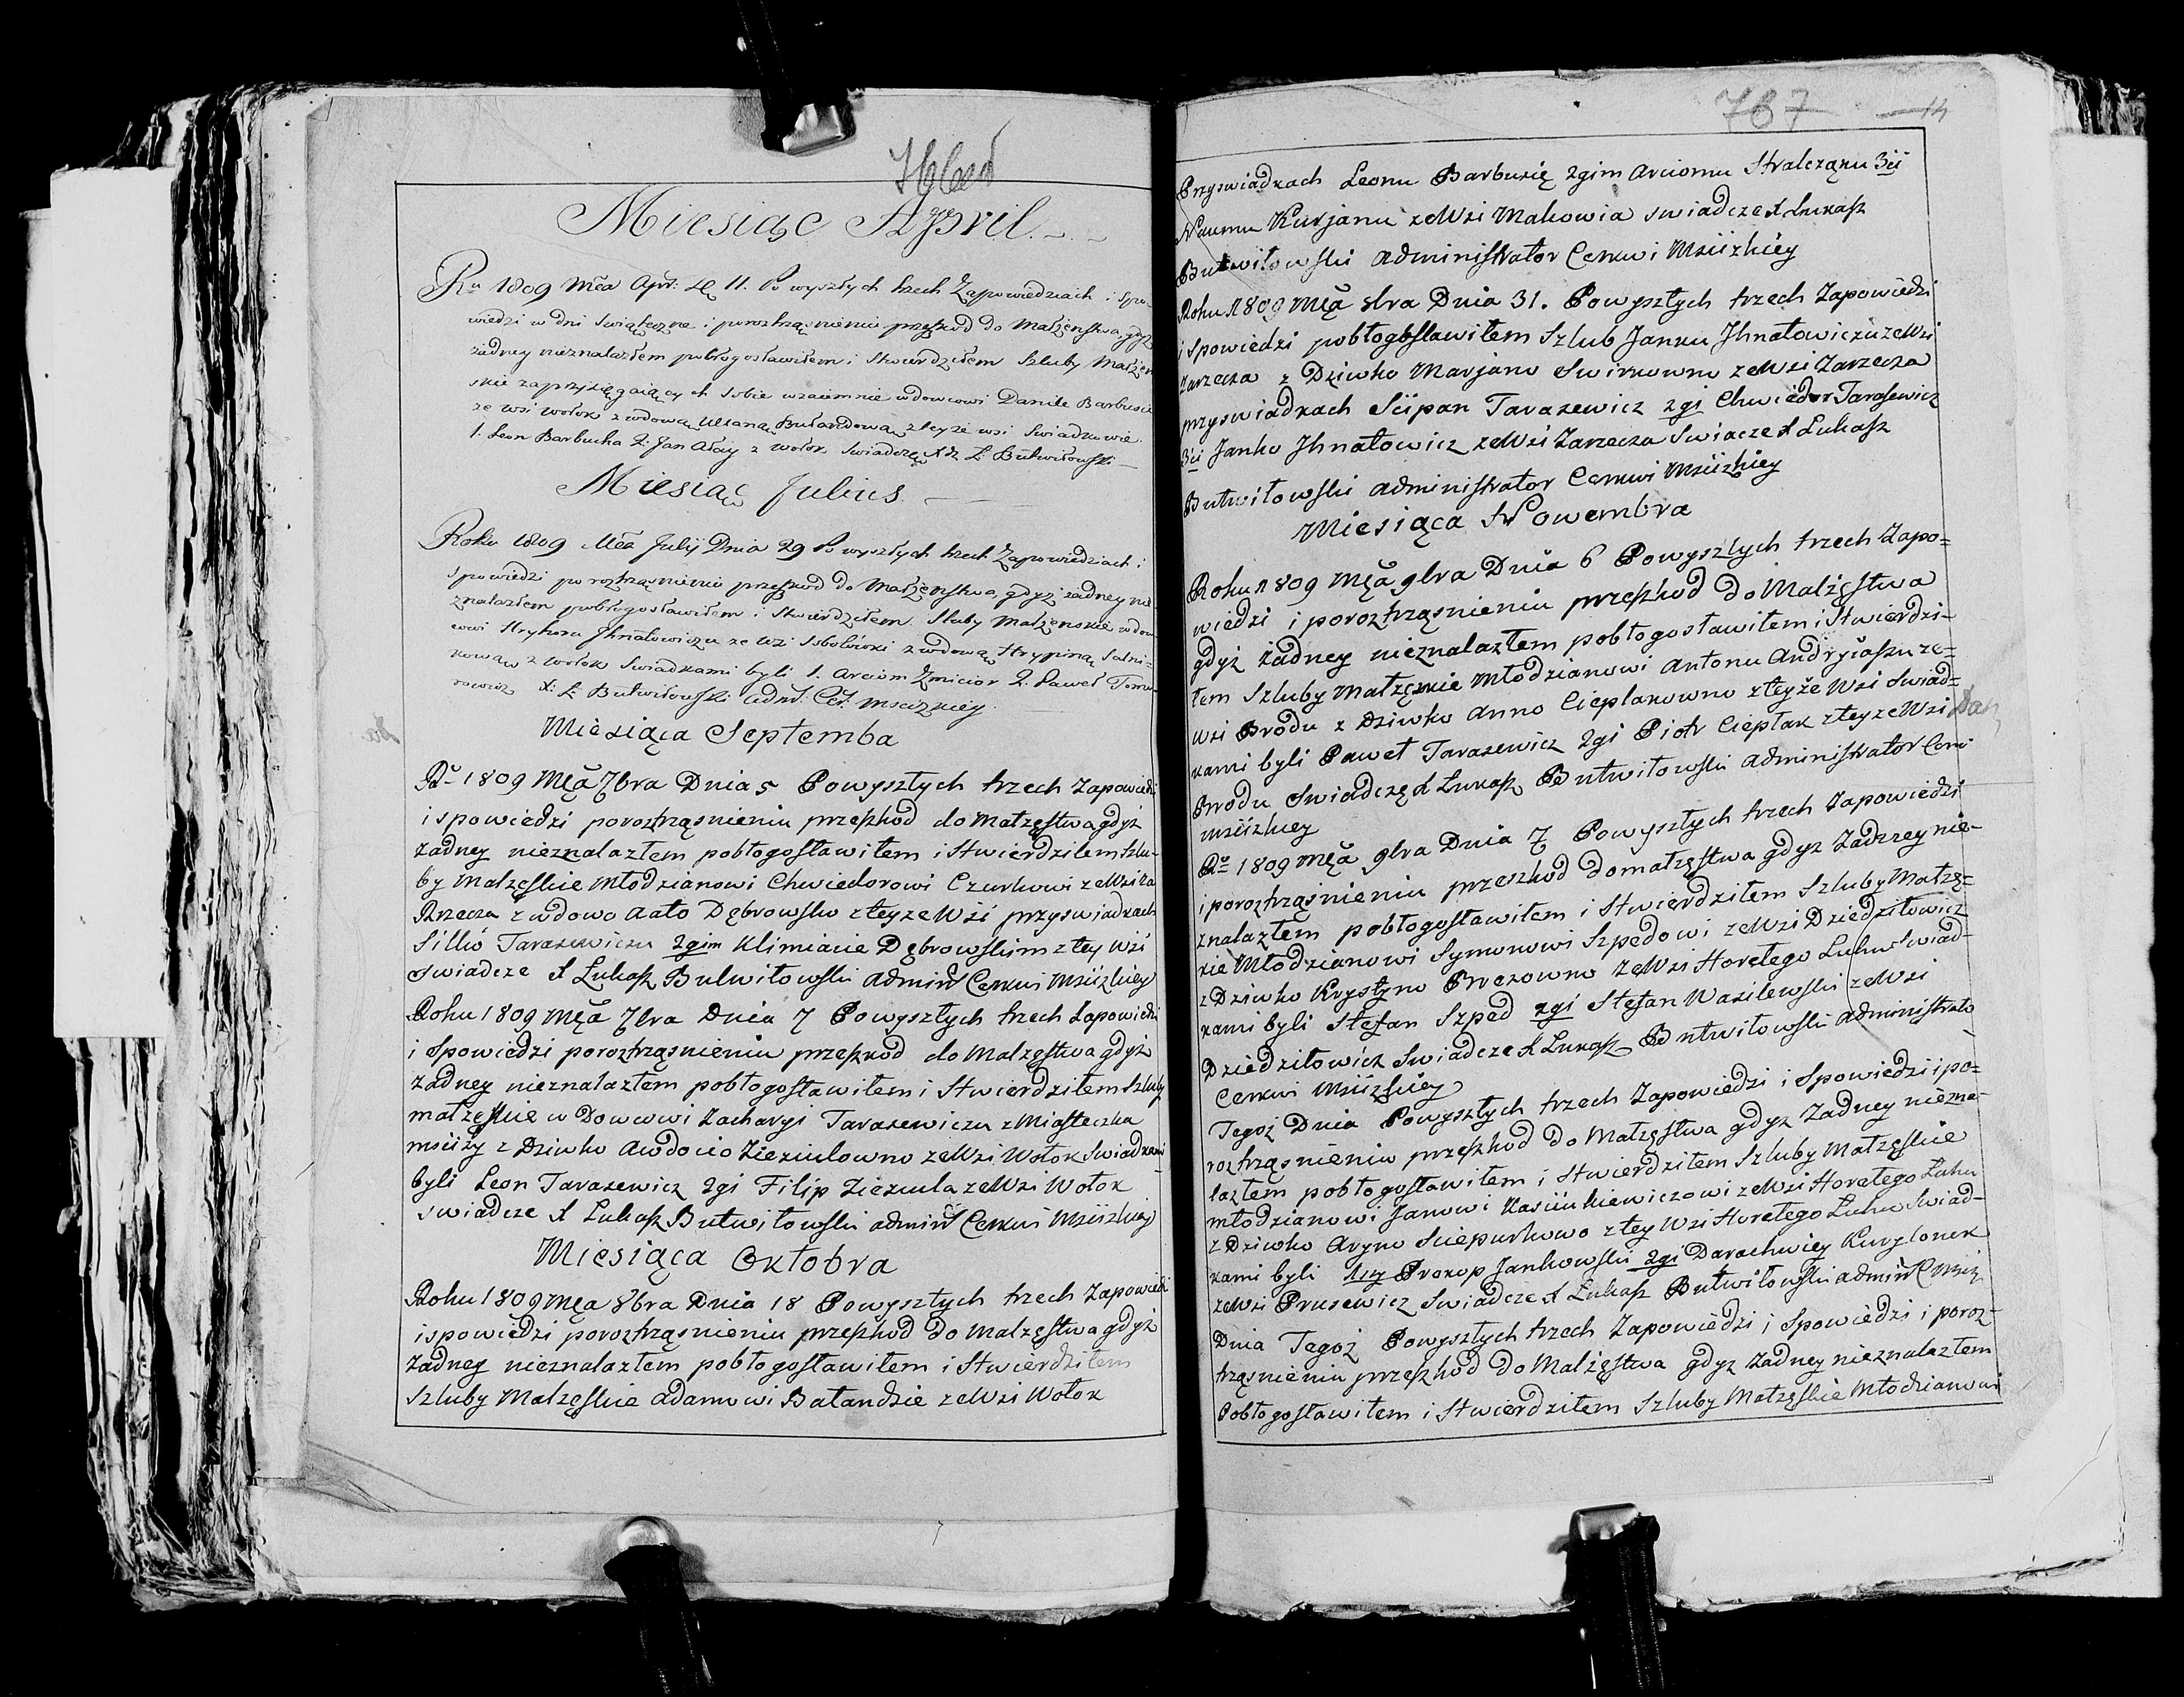 Miesiąc April
Ru 1809 Mca Apr: 11. Po wyszłych trzech Zapowiedziach i Spo-
wiedzi w dni Swiąteczne i poroztrząsnieniu przeszkod do Małżenstwa gdyż
żadney nieznalazłem pobłogosławiłem i Stwierdziłem Szluby Małżen
skie zaprzysięgaiących Sobie wzaiemnie wdowcowi Danile Barbusie
ze wsi wołok z wdową Bułandową z teyże wsi Swiadkowie
1. Leon Barbucha 2. Jan Ałay z wołok Swiadczę X L: Butwiłowski
Miesiąc Julius
Roku 1809 Mca Julij Dnia 29 Po wyszłych trzech Zapowiedziach i
Spowiedzi po roztrząsnieniu przeszkod do Małżenstwa, gdyż żadney nie
znalazłem pobłogosławiłem i Stwierdziłem Sluby Małzenskie wdow
cowi Hryhoru Jhnatowiczu ze wsi z wdową Hrypiną
kową z wołok Swiadkami byli 1. Arciom Zmicior 2. Paweł Toma
rowicz X: L: Butwiłowski Adm: Cer: Mscizkiey
Miesiąca Septemba
Ru 1809 Mca 7bra Dnia 5 Powyszłych trzech Zapowiedi
i spowiedzi poroztrząsnieniu przeszkod do małzęstwa gdyż
żadney nieznalazłem pobłogosławiłem i Stwierdziłem Szlu-
by Małzęskie Młodzianowi Chwiedorowi Czurkowi zeWsi Za
Rzecza z wdowo Dębrowsko zteyże Wsi przyswiadkach
Tarasewiczu 2gim Klimiacie Dębrowskim ztey wsi
Swiadcze X Lukasz Butwiłowski admin Cerkwi Msiizkiey
Roku 1809 Mca 7bra Dnia 7 Powyszłych trzech Zapowiedi
i Spowiedzi poroztrząsnieniu przeszkod do Malzęstwa gdyż
żadney nieznalazłem pobłogosławiłem i Stwierdziłem Szluby
małzęskie w Dowcowi Zacharyi Tarasewiczu z Miasteczka
msiizy z Dziwko Awdocio Zieziulowno zeWsi Wołok Swiadkami
byli Leon Tarasewicz 2gi Filip Ziezula zeWsi Wołok
swiadcze X Lukasz Butwiłowski admin Cerkwi Msiizkiey
Miesiąca Oktobra
Roku 1809 Męa 8bra Dnia 18 Powyszłych trzech Zapowiedi
i spowiedzi poroztrząsnieniu przeszkod do małzęstwa gdyż
żadney nieznalazłem pobłogosławiłem i Stwierdziłem
Szluby Małzęskie adamowi Bałandzie zeWsi Wołok
767 14
Przyswiadkach Leonu Barbusię 2gim Arciomu Stralcząku 3ii
Naumu Kurjanu zeWsi Makowia swiadcze X Lukasz
Butwiłowski administrator Cerkwi Msiizkiey
Roku 1809 Mca Dnia 31. Powyszłych trzech Zapowiedzi
i Spowiedzi pobłogosławiłem Szlub Janku Jhnatowiczu zeWsi
Zarzecza z Dziwko Marjano Swirkowno zeWsi Zarzecza
przyswiadkach Sciipan Tarazewicz 2gi Chwiedor Tarasewicz
3ci Janko Jhnatowicz zeWsi Zarzecza Swiacze X Lukasz
Butwiłowski administrator Cerkwi Msiizkiey
Miesiąca Nowembra
Roku 1809 Męa 9bra Dnia 6 Powyszłych trzech Zapo=
wiedzi i poroztrząsnieniu przeszkod do Małżęstwa
gdyż żadney nieznalazłem pobłogosławiłem i Stwierdzi-
łem Szluby Małzęskie Młodzianowi Antonu Andryiaszu ze=
wsi Brodu z Dziwko Anno Cieplakowno zteyże Wsi Swiad=
kami byli Paweł Tarasewicz 2gi Piotr Cieplak zteyzeWsi
Brodu Swiadczę X Lukasz Butwiłowski administrator Cerk
msiizkiey
Ro 1809 Męa 9bra Dnia 7 Powyszłych trzech Zapowiedzi
i poroztrząsnieniu przeszkod domałzęstwa gdyz Zadzrey nie-
znalazłem pobłogosławiłem i Stwierdziłem Szluby Małzę=
kie Młodzianowi Symonowi Szpedowi zeWsi Dziedziłowicz
z Dziwko Krystyno Brezowno zeWsi Horełego Luhu Swiad-
kami byli Stefan Szped 2gi Stefan Wasilewski zeWsi
Dziedziłowicz Swiadcze X Lukasz Butwiłowski administrato
Cerkwi Msiizkiey
Tegoż Dnia Powyszłych trzech Zapowiedzi i Spowiedzi i po=
roztrząsnieniu przeszkod do Małzęstwa gdyz Zadney niezna-
lazłem pobłogosławiłem i Stwierdziłem Szluby Małzęskie
młodzianowi Janowi Kasiukiewiczowi zeWsi Horełego Luhu
z Dziwko Aryno Sciepurkowo ztey Wsi Horełego Luhu Swiad-
kami byli 1szy Prokop Jankowski 2gi Darachwiey Kurylonek
zeWsi Prusewicz Swiadcze X Lukasz Butwiłowski admin C Msiiz
Dnia Tegoż Powyszłych trzech Zapowiedzi i Spowiedzi i poroz-
trząsnieniu przeszkod do Małżęstwa gdyz zadney nieznalazłem
Pobłogosławiłem i Stwierdziłem Szluby Małzęskie Młodzianowi